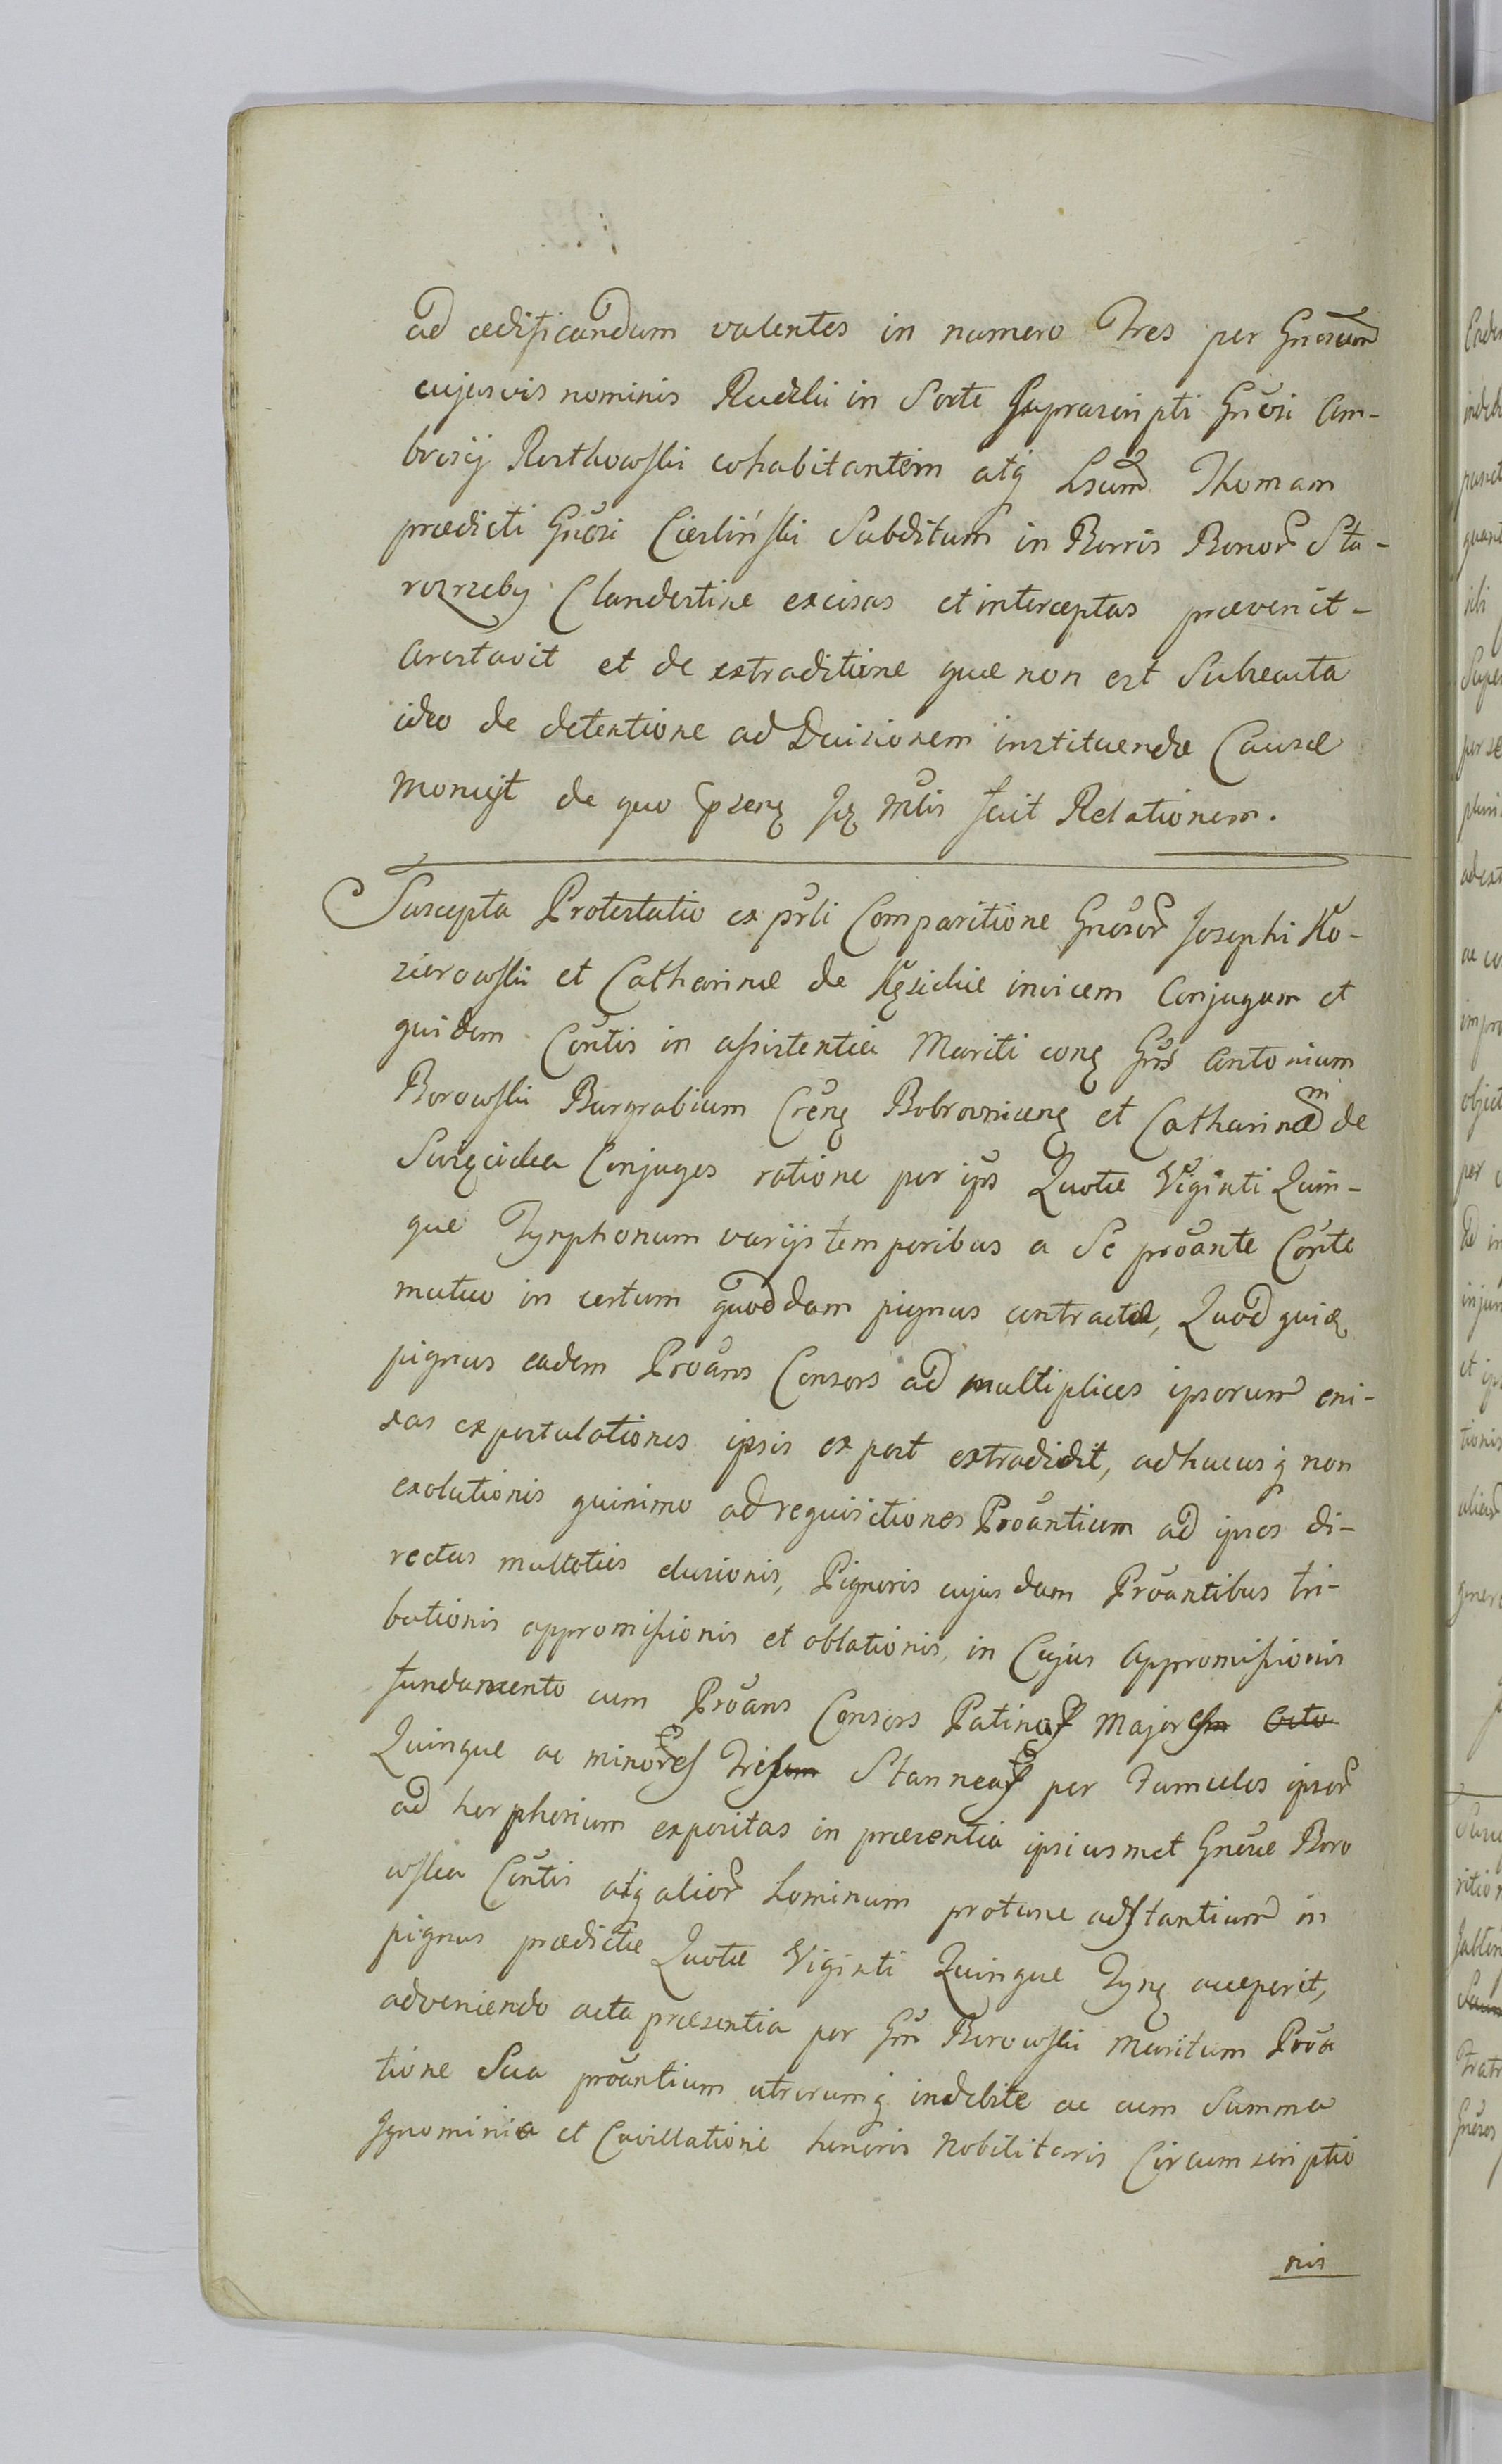 ad aedificandum valentes in numero Tres per Gnosum
cujusvis nominis Rudzki in Sorte Suprascripti Gnosi Am-
brosij Rostkowski cohabitantem atq Lsum Thomam
praedicti Gnosi Cieśliński Subditum in Borris Bonor Sta-
rozrzeby Clandestine excisas et interceptas praevenit-
Arestavit et de extraditione quae non est Subsecuta
ideo de detentione ad Decisionem instituendae Causae
monuyt de quo psens Jq Mlis fecit Relationem.
Suscepta Protestatio ex psli Comparitione Gnosor Josephi Ko-
zierowski et Catharinae de Kęsickie invicem Conjugum et
quidem Contis in assistentia Mariti conq Gns Antonium
Borowski Burgrabium Crenq Bobrovnicenq et Catharinam de
Święcickea Conjuges ratione per ips Quotae Viginti Quin-
que Tynphonum varijs temporibus a Se proante Conte
mutuo in certum quoddam pignus contractae, Quod quia
pignus eadem Proans Consors ad multiplices ipsorum eni-
xas expostulationes ipsis ex post extradidit, adhucusq non
exolutionis quinimo ad requisitiones Proantium ad ipsos di-
rectas multoties elusionis, Pignoris cujusdam Proantibus tri-
butionis appromissionis et oblationis, in Cujus Appromissionis
fundamento cum Proans Consors Patinas Majores Octo
Quinque ac minores Tres Stanneas per Famulos ipsor
ad horphorium expositas in praesentia ipsiusmet Gnosae Boro
wskea Contis atq alior hominum protunc adstantium in
pignus praedictae Quotae Viginti Quinque Tynq acceperit,
adveniendo acta praesentia per Gm Borowski Maritum Proa
tione Sua proantium utrorumq indebite ac cum Summa
Jgnominia et Cavillatione honoris Nobilitaris Circumscriptio
nis